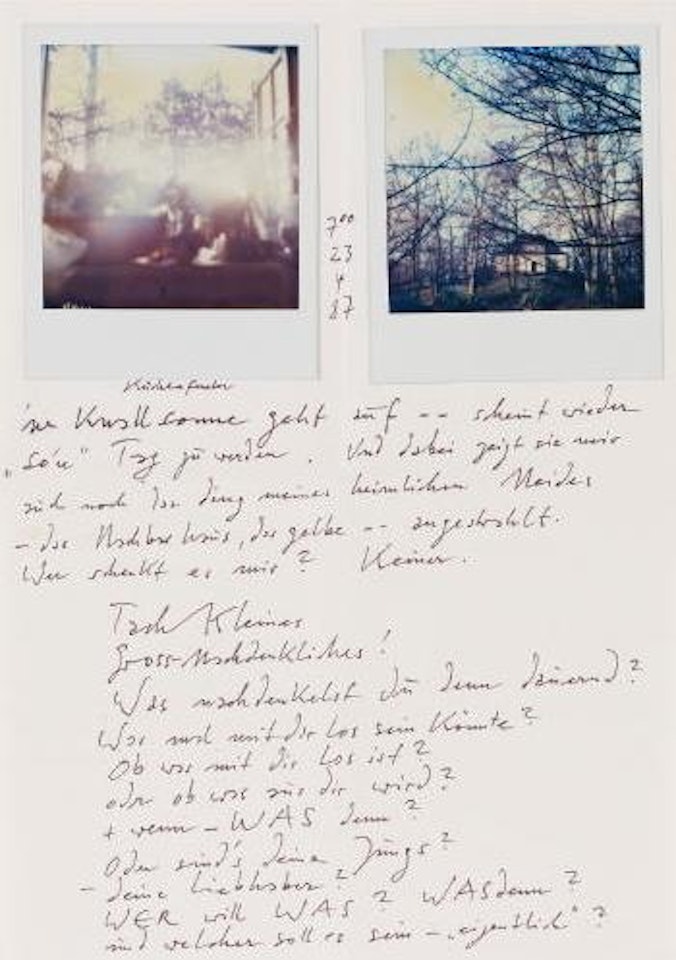 7⁰⁰
23
4
87
Küchenfenster
'ne Knallsonne geht auf -- scheint wieder
„so'n" Tag zu werden. Und dabei zeigt sie mir
auch noch das Ding meines heimlichen Neides
- das Nachbarhaus, das gelbe -- angestrahlt.
Wer schenkt es mir? Keiner.
Tach Kleines
Gross-Nachdenkliches!
Was nachdenkelst du denn dauernd?
Was mit dir los sein könnte?
Ob was mit dir los ist?
oder ob was aus dir wird?
+ wenn - WAS denn?
Oder sind's deine Jungs?
- deine Liebhaber?
WER will WAS? WAS denn?
und welcher soll es sein - „eigentlich"?